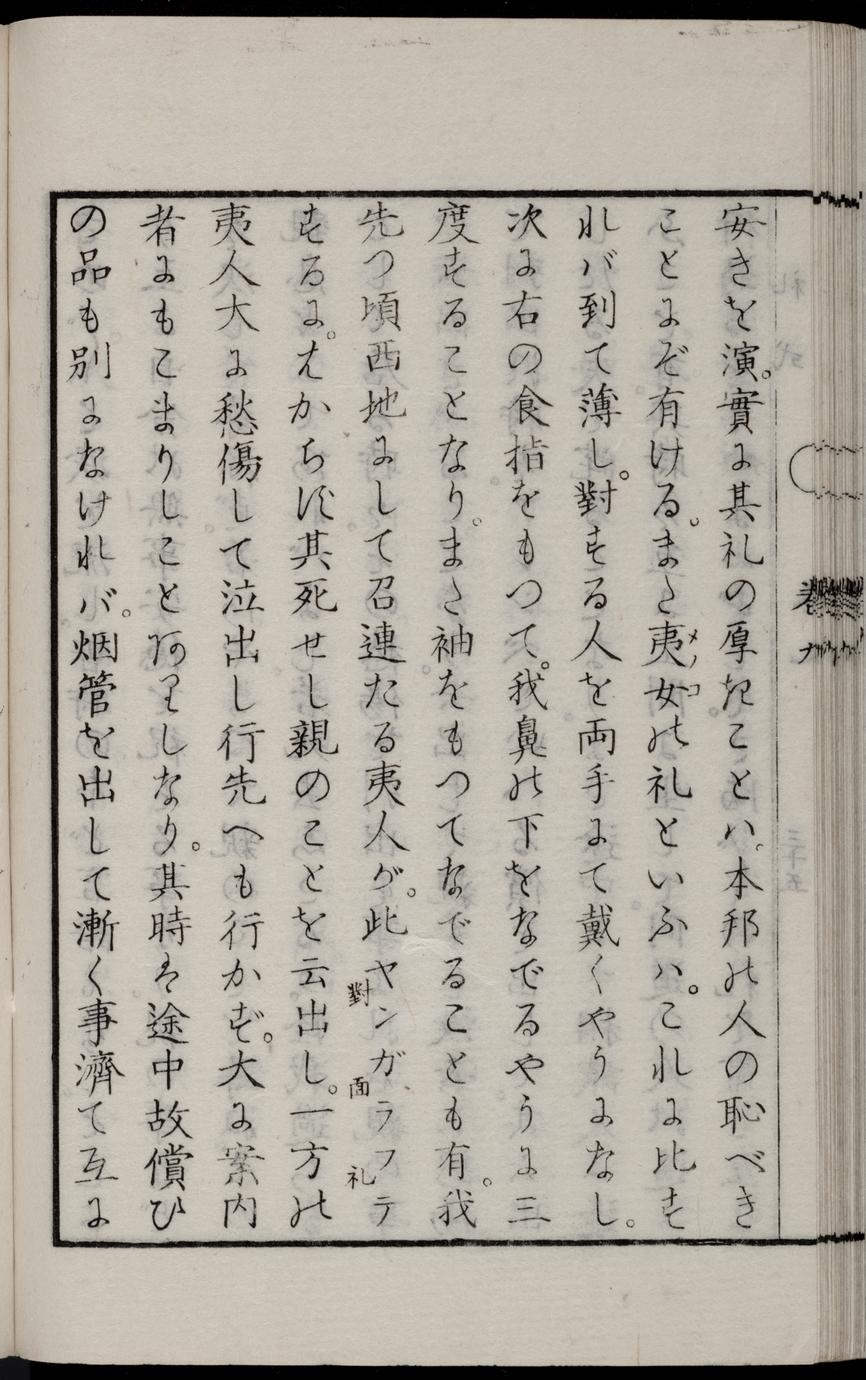 安きを演。實に其礼の厚きことハ。本邦の人の恥べき
ことにぞ有ける。また夷女の礼といふハ。これに比す
メノコ
れバ到て薄し。對する人を両手にて戴くやうになし。
次に右の食指をもつて。我鼻の下をなでるやうに三
度することなり。また袖をもつてなでることも有。我
先つ頃西地にして召連たる夷人が。此ヤンガラフテ
對面礼
するに。はからず其死せし親のことを云出し。一方の
夷人大に愁傷して泣出し行先へも行かず。大に案内
者にもこまりしこと阿りしなり。其時は途中故償ひ
の品も別になけれバ。烟管を出して漸く事濟て互に
巻九